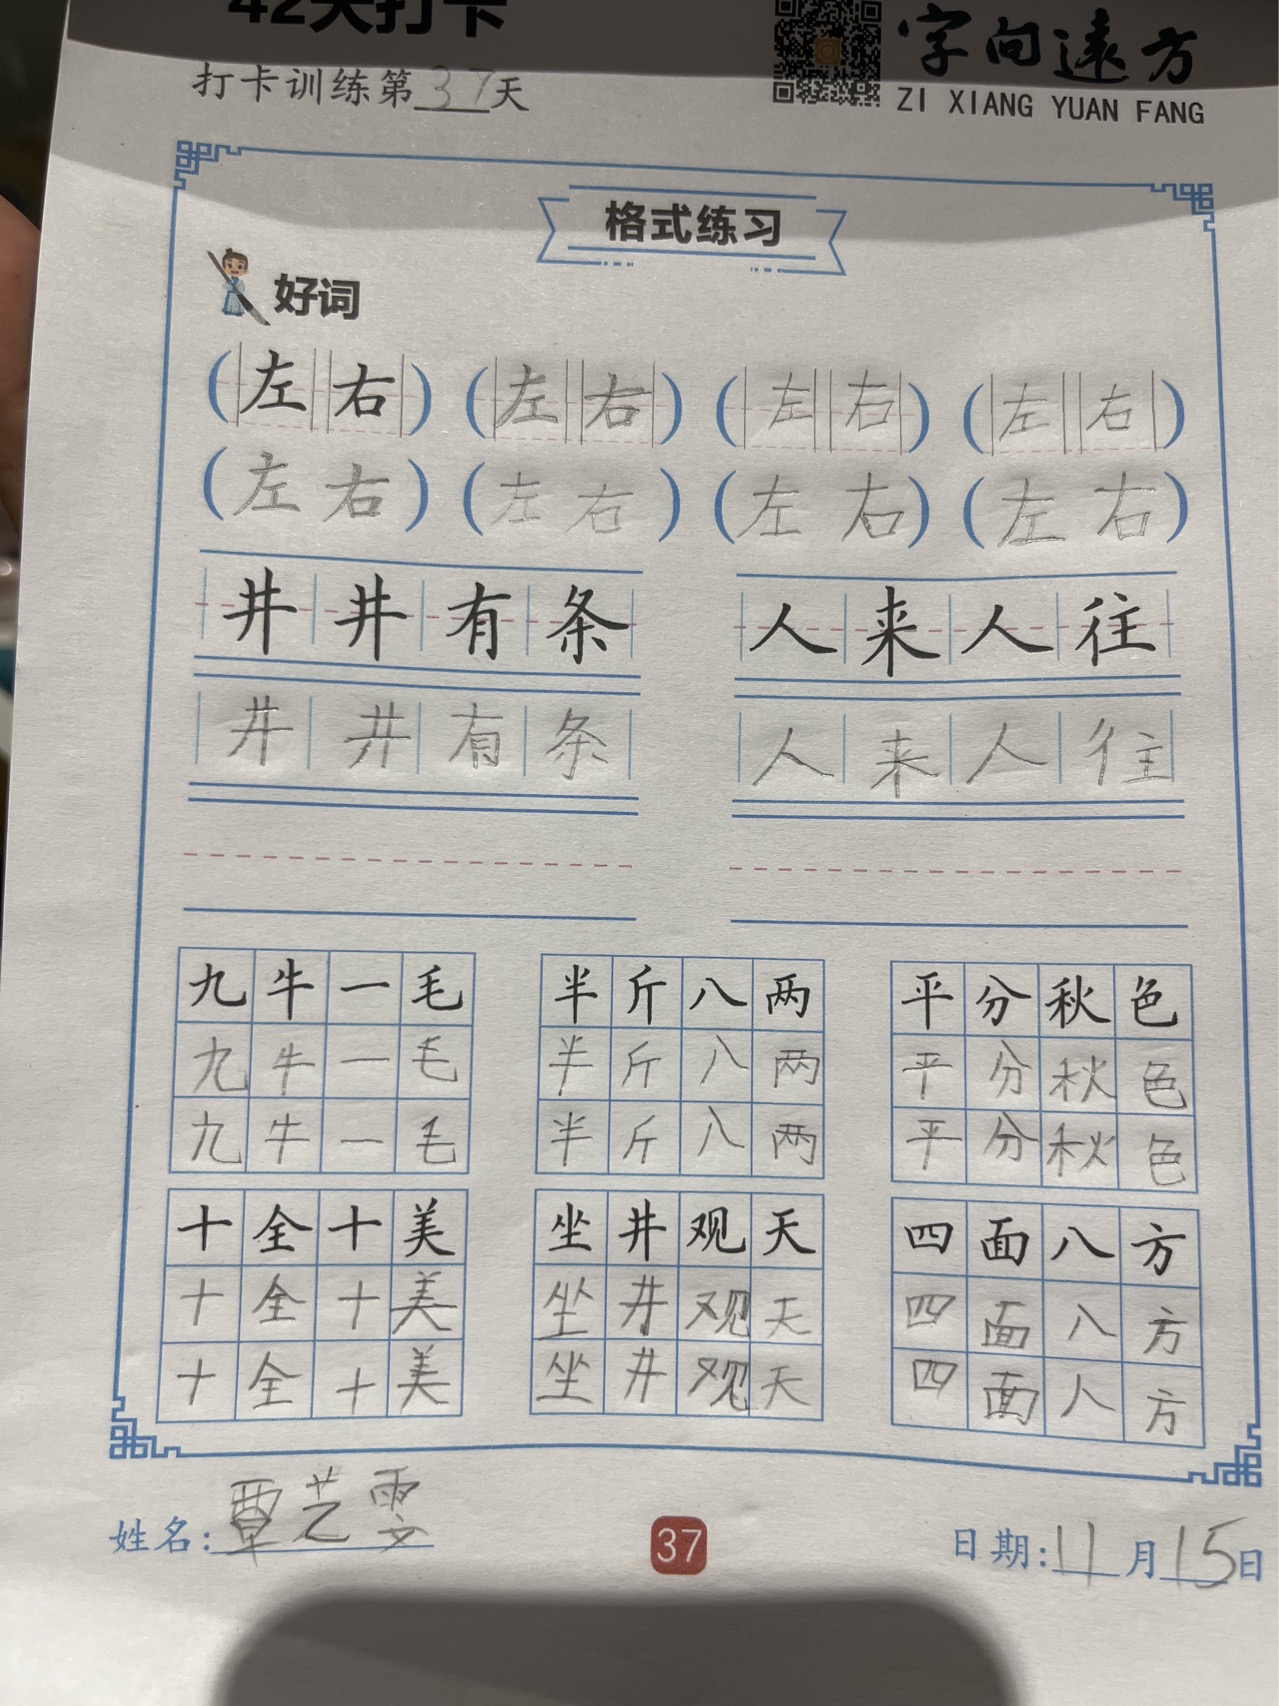 42天打卡
字向远方
ZI XIANG YUAN FANG
打卡训练第37天
格式练习
好词
(左右) (左右) (左右) (左右)
(左右) (左右) (左右) (左右)
井井有条 人来人往
井井有条 人来人往
九牛一毛 半斤八两 平分秋色
九牛一毛 半斤八两 平分秋色
九牛一毛 半斤八两 平分秋色
十全十美 坐井观天 四面八方
十全十美 坐井观天 四面八方
十全十美 坐井观天 四面八方
姓名:覃芝雯 37 日期:11月15日